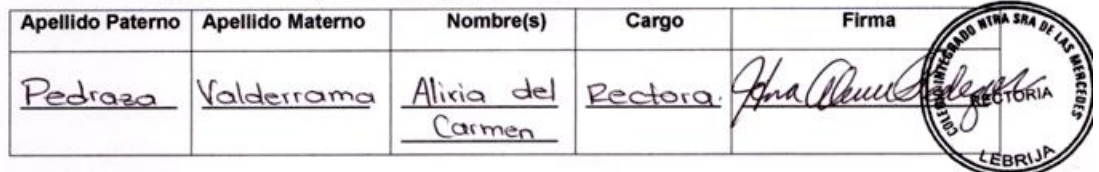 Apellido Paterno Apellido Materno Nombre(s) Cargo Firma
Pedraza Valderrama Aliria del Rectora.
Carmen
COLEGIO INTEGRADO NTRA SRA DE LAS MERCEDES
RECTORIA
LEBRIJA